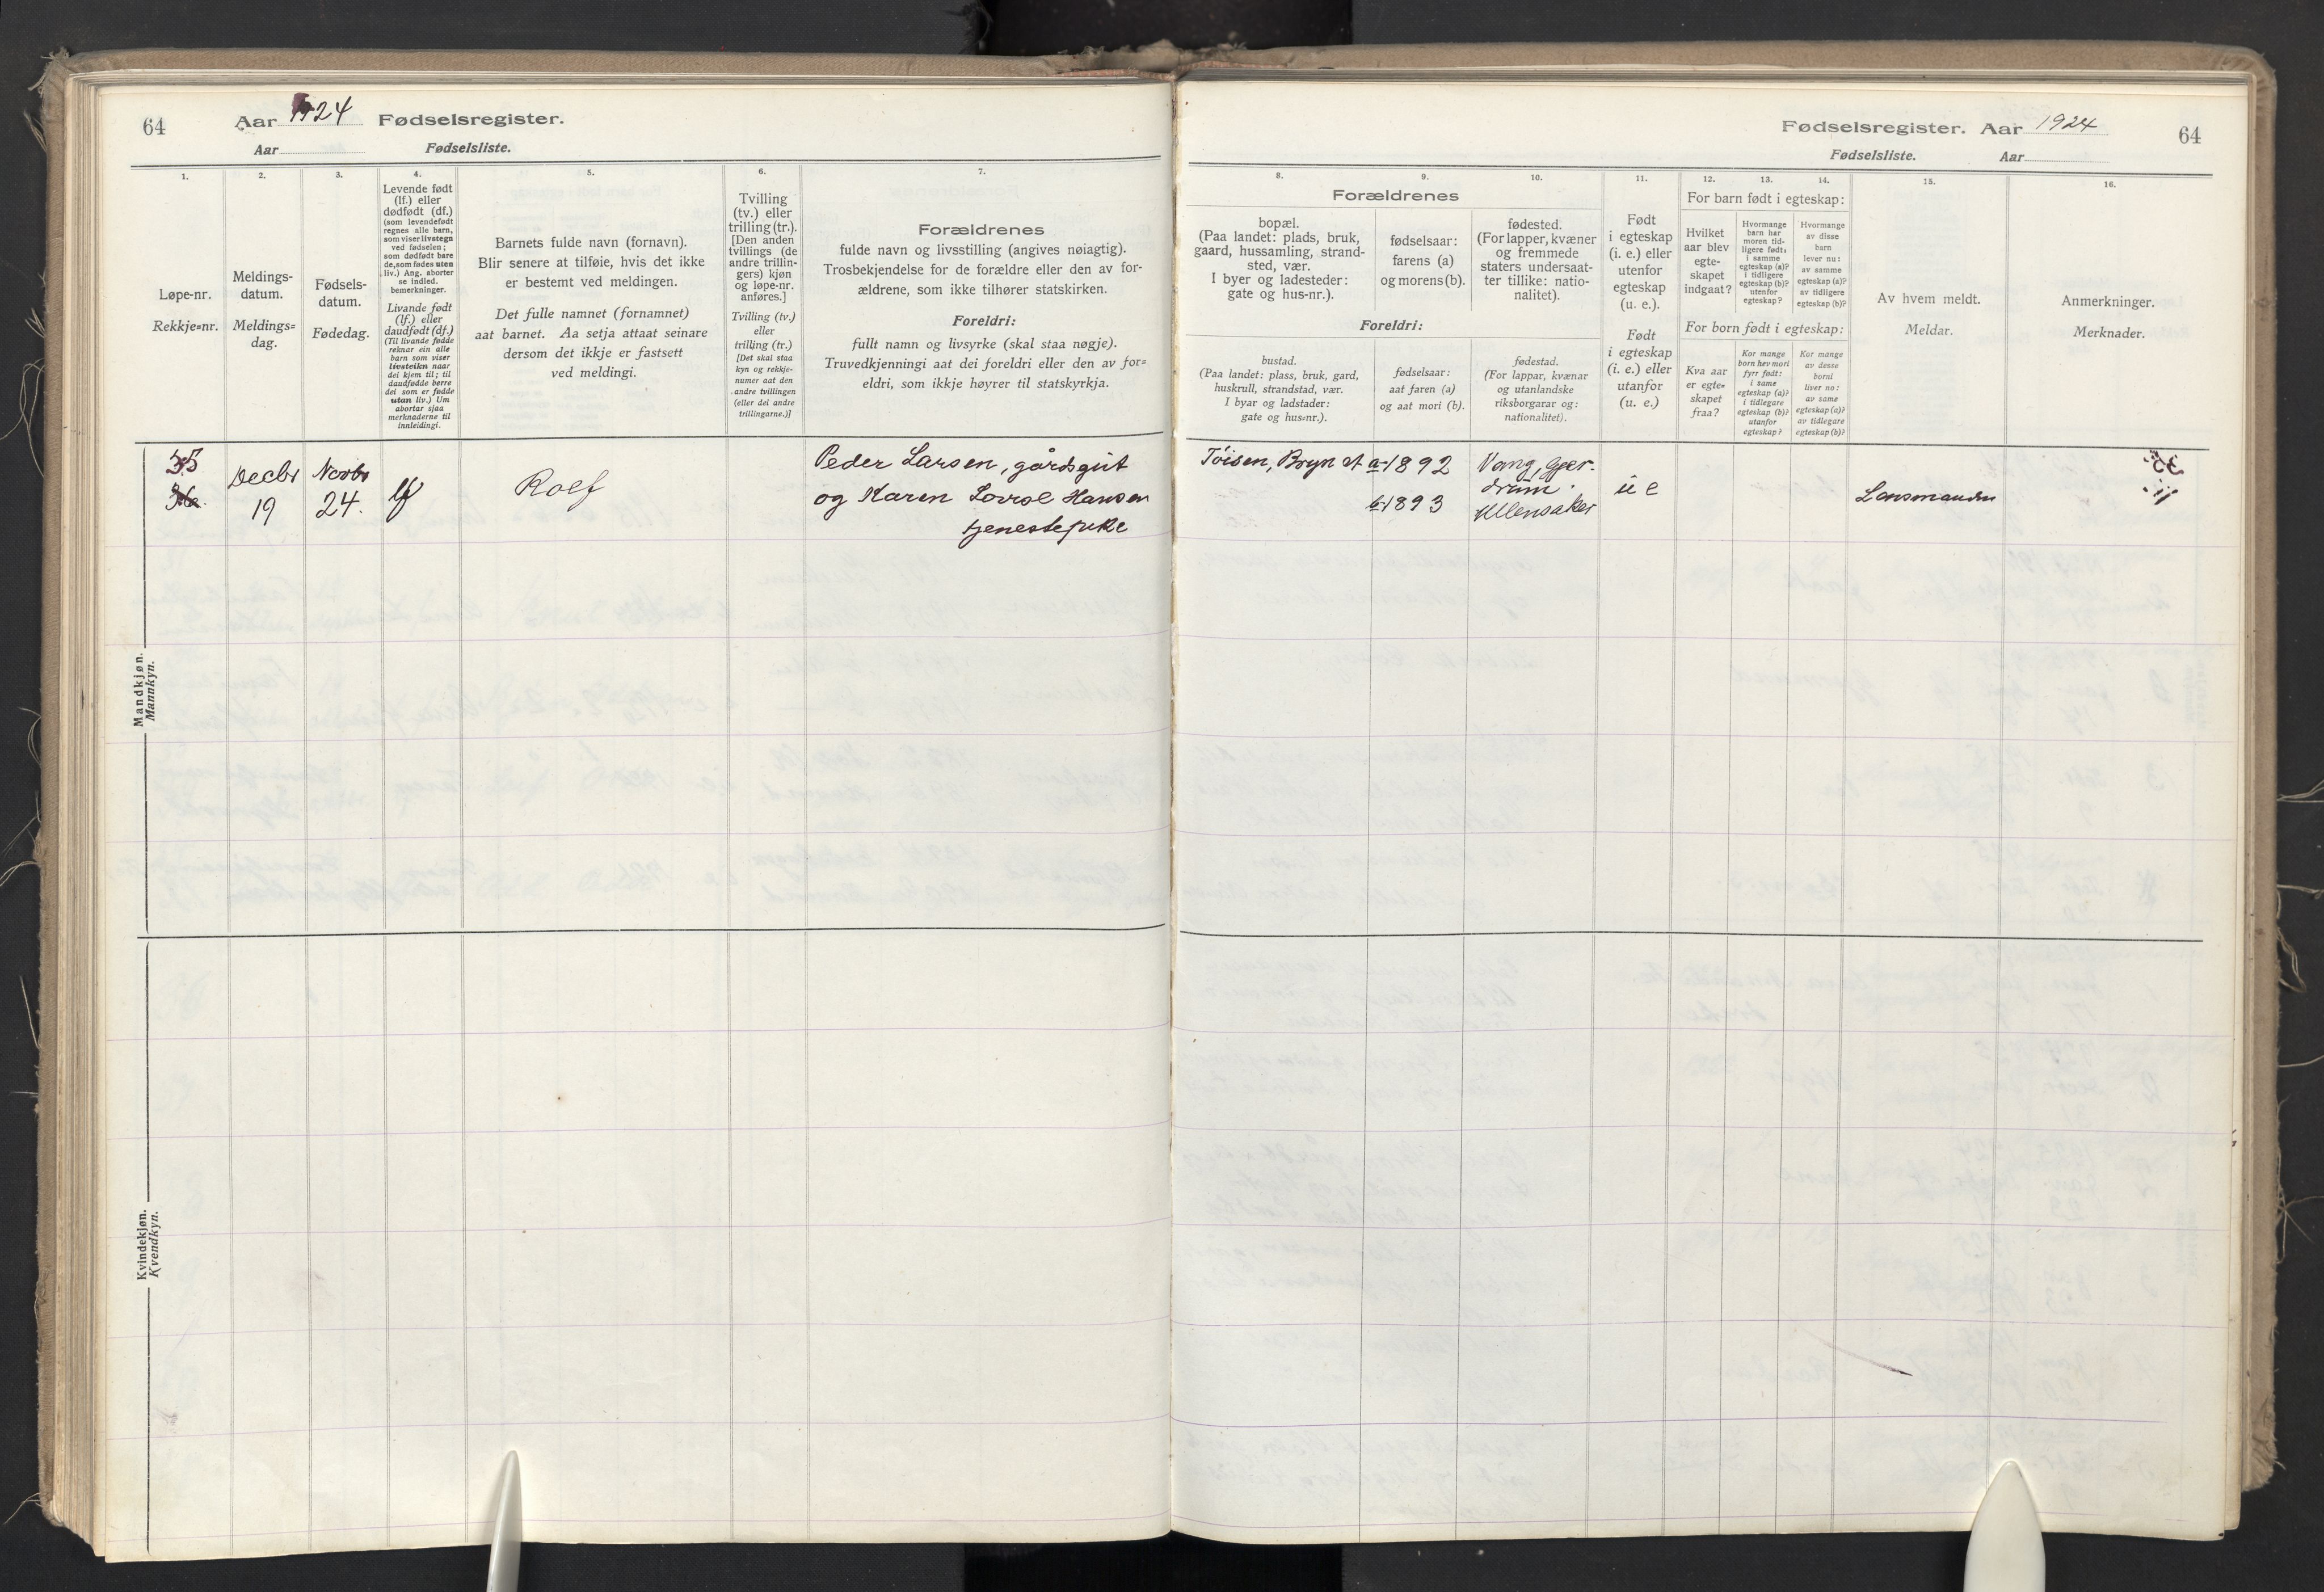 64
Aar 1924 Fødselsregister.
Aar Fødselsliste.
1.
2.
3.
4.
5.
6.
7.
Løpe-nr.
Rekkje=nr.
Meldings-
datum.
Meldings=
dag.
Fødsels-
datum.
Fødedag.
Levende født
(lf.) eller
dødfødt (df.)
(som levendefødt
regnes alle barn,
som viser livstegn
ved fødselen;
som dødfødt bare
de, som fødes uten
liv.) Ang. aborter
se indled.
bemerkninger.
Livande født
(lf.) eller
daudfødt (df.)
(Til livande fødde
reknar ein alle
barn som viser
livsteikn naar
dei kjem til; til
daudfødde berre
dei som er fødde
utan liv.) Um
abortar sjaa
merknaderne til
innleidingi.
Barnets fulde navn (fornavn).
Blir senere at tilføie, hvis det ikke
er bestemt ved meldingen.
Det fulle namnet (fornamnet)
aat barnet. Aa setja attaat seinare
dersom det ikkje er fastsett
ved meldingi.
Tvilling
(tv.) eller
trilling (tr.).
[Den anden
tvillings (de
andre trillin-
gers) kjøn
og løpe-nr.
anføres.]
Tvilling (tv.)
eller
trilling (tr.)
[Det skal staa
kyn og rekkje-
numer aat den
andre tvillingen
(eller dei andre
trillingarne.)]
Forældrenes
fulde navn og livsstilling (angives nøiagtig).
Trosbekjendelse for de forældre eller den av for-
ældrene, som ikke tilhører statskirken.
Foreldri:
fullt namn og livsyrke (skal staa nøgje).
Truvedkjenningi aat dei foreldri eller den av for=
eldri, som ikkje høyrer til statskyrkja.
35
Decbr
19
Novbr
24.
lf
Rolf
Peder Larsen, gårdsgut
og Karen Hansen
tjenestepike
Mandkjøn.
Mannkyn.
Kvindekjøn.
Kvendkyn.
Fødselsregister. Aar 1924
64
Fødselsliste. Aar
8.
9.
10.
11.
12.
13.
14.
15.
16.
Forældrenes
bopæl.
(Paa landet: plads, bruk,
gaard, hussamling, strand-
sted, vær.
I byer og ladesteder:
gate og hus-nr.).
fødselsaar:
farens (a)
og morens (b).
fødested.
(For lapper, kvæner
og fremmede
staters undersaat-
ter tillike: natio-
nalitet).
Foreldri:
bustad.
(Paa landet: plass, bruk, gard,
huskrull, strandstad, vær.
I byar og ladstader:
gate og hus=nr.).
fødselsaar:
aat faren (a)
og aat mori (b).
fødestad.
(For lappar, kvænar
og utanlandske
riksborgarar og:
nationalitet).
Født
i egteskap
(i. e.) eller
utenfor
egteskap
(u. e.).
Født
i egteskap
(i. e.) eller
utanfor
(u. e.)
For barn født i egteskap:
Hvilket
aar blev
egte-
skapet
indgaat?
Hvormange
barn har
moren tid-
ligere født:
i samme
egteskap (a)?
i tidligere
egteskap (b)?
utenfor
egteskap?
Hvormange
av disse
barn
lever nu:
av samme
egteskap (a)?
av tidligere
egteskap (b)?
For born født i egteskap:
Kva aar
er egte=
skapet
fraa?
Kor mange
born hev mori
fyrr født:
i same
egteskap (a)?
i tidlegare
egteskap (b)?
utanfor
egteskap?
Kor mange
av desse
borni
liver no:
av same
egteskap (a)?
av tidlegare
egteskap (b)?
Av hvem meldt.
Meldar.
Anmerkninger.
Merknader.
Tøisen, Bryn st
a-1892
b-1893
Vang, Gjer-
drum.
Ullensaker
u e
Lensmanden